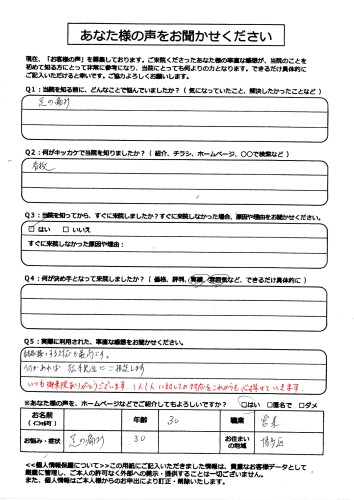 あなた様の声をお聞かせください
現在、「お客様の声」を募集しております。ご来院くださったあなた様の率直な感想が、当院のことを
初めて知る方にとって非常に参考になり、当院にとっても何よりの力となります。できるだけ具体的に
ご記入いただけると幸いです。ご協力よろしくお願いします。
Q1:当院を知る前に、どんなことで悩んでいましたか?(気になっていたこと、解決したかったことなど)
足の痛み
Q2:何がキッカケで当院を知りましたか?(紹介、チラシ、ホームページ、〇〇で検索など)
看板
Q3:当院を知ってから、すぐに来院しましたか?すぐに来院しなかった場合、原因や理由をお聞かせください。
☑はい □いいえ
すぐに来院しなかった原因や理由:
Q4:何が決め手となって来院しましたか?(価格、評判、実績、雰囲気など、できるだけ具体的に)
Q5:実際に利用された、率直な感想をお聞かせください。
対応も最高です。
何かあれば
いつも御来院ありがとうございます。1人1人に対しての対応をこれからも心掛けていきます。
※あなた様の声を、ホームページなどでご紹介してもよろしいですか? □はい □匿名で □ダメ
お名前
(イニシャル可)
年齢 30 職業 営業
お悩み・症状 足の痛み 30 お住まい
の地域 博多区
<<個人情報保護について>>この用紙にご記入いただきました情報は、貴重なお客様データとして
厳重に管理し、ご本人の許可なく外部への開示・提供することは一切ございません。
また、個人情報はご本人様からのお申出により訂正・削除いたします。